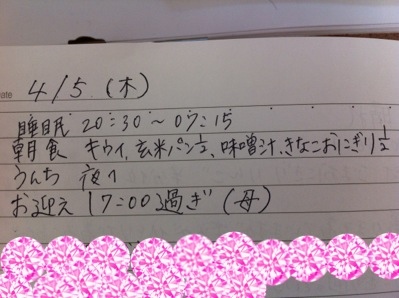 ate 4/5 (木)
睡眠 20:30～07:15
朝食 キウイ、玄米パン½、味噌汁、きなこおにぎり½
うんち 夜1
お迎え 17:00過ぎ (母)